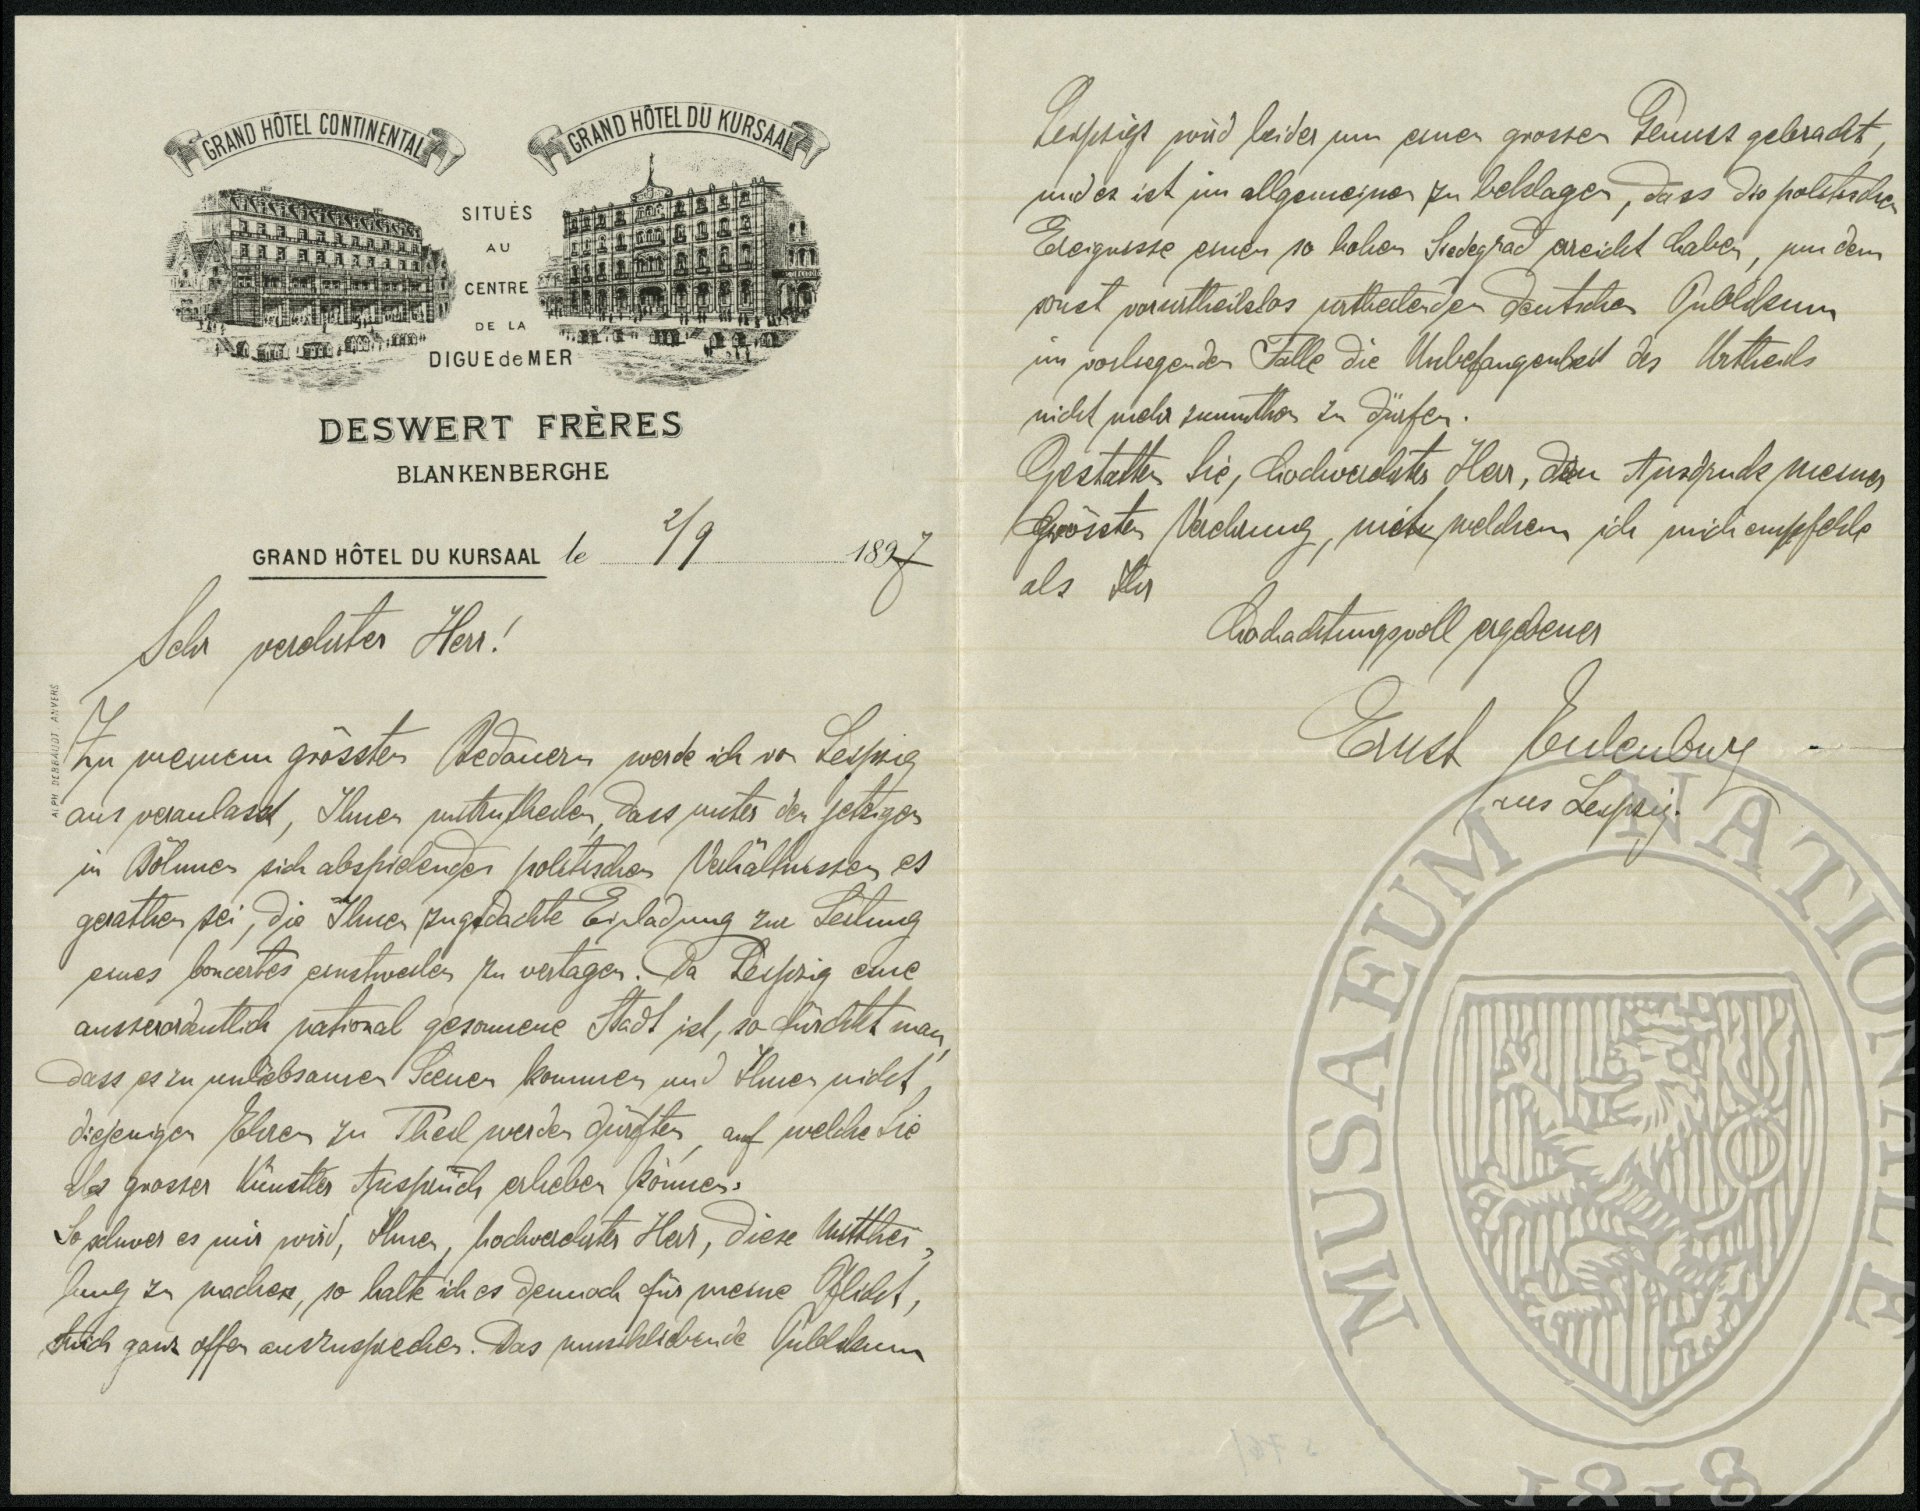 GRAND HÔTEL CONTINENTAL
GRAND HÔTEL DU KURSAAL
SITUÉS
AU
CENTRE
DE LA
DIGUE de MER
DESWERT FRÈRES
BLANKENBERGHE
GRAND HÔTEL DU KURSAAL le 2/9 1897
ALPH DENBAUDT ANVERS
Sehr verehrter Herr!
Zu meinem grössten Bedauern werde ich von Leipzig
aus veranlasst, Ihnen mitzutheilen, dass unter den jetzigen
in Böhmen sich abspielenden politischen Verhältnissen es
gerathen sei, die Ihnen zugedachte Einladung zur Leitung
eines Concertes einstweilen zu vertagen. Da Leipzig eine
ausserordentlich national gesonnene Stadt ist, so fürchtet man,
dass es zu unliebsamen Scenen kommen und Ihnen nicht
diejenigen Ehren zu Theil werden dürften, auf welche Sie
als grosser Künstler Anspruch erheben können.
So schwer es mir wird, Ihnen, hochverehrter Herr, diese Mitthei-
lung zu machen, so halte ich es dennoch für meine Pflicht,
mich ganz offen auszusprechen. Das musikliebende Publikum
Leipzigs wird leider um einen grossen Genuss gebracht,
und es ist im allgemeinen zu beklagen, dass die politischen
Ereignisse einen so hohen Siedegrad erreicht haben, um dem
sonst vorurtheilslos urtheilenden deutschen Publikum
im vorliegenden Falle die Unbefangenheit des Urtheils
nicht mehr zumuthen zu dürfen.
Gestatten Sie, hochverehrter Herr, den Ausdruck meiner
grössten Verehrung, mit welchem ich mich empfehle
als Ihr
hochachtungsvoll ergebener
Ernst Eulenburg
aus Leipzig.
MUSAEUM NATIONALE
1818